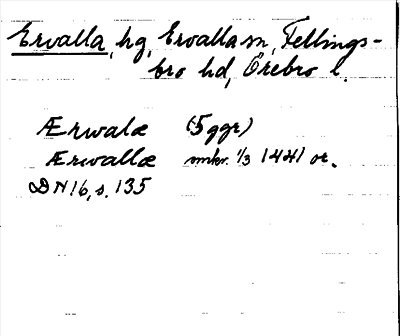 Ervalla, hg, Ervalla sn, Fellings-
bro hd, Örebro l.
Ærwalæ (5 ggr)
Ærwallæ smkr. 1/3 1441 or.
DN 16, s. 135